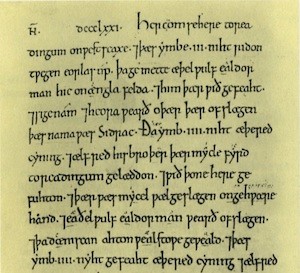 dccclxxi. Her com se here to rea
dingum on westseaxe. ⁊ þæs ymbe .iii. niht ridon
twegen eorlas up. þa gemette æþelwulf ealdor
man hie on engla felda. ⁊ him þær wið gefeaht.
⁊ sige nam ⁊ heora wearð oþer þær ofslægen
þæs nama wæs Sidrac. Ða ymb .iiii. niht æþered
cyning. ⁊ ælfred his broþor þær mycle fyrd
to readingum gelæddon. ⁊ wið þone here ge
fuhton. ⁊ þær wæs mycel wæl geslægen on gehwæþere
hand. ⁊ æþelwulf ealdorman wearð ofslægen.
⁊ þa deniscan ahton wælstowe geweald. ⁊ þæs
ymb .iiii. niht gefeaht æþered cyning ⁊ ælfred